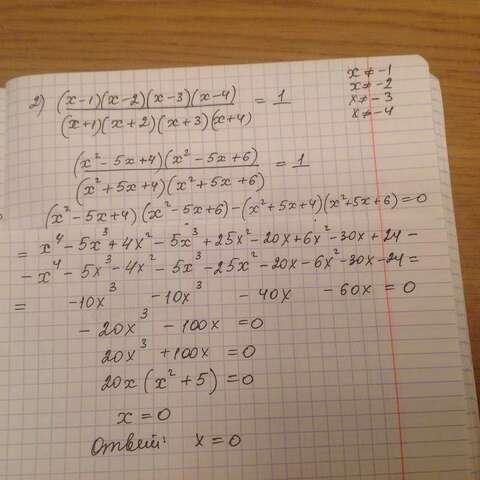 2) (x-1)(x-2)(x-3)(x-4) / (x+1)(x+2)(x+3)(x+4) = 1
x ≠ -1
x ≠ -2
x ≠ -3
x ≠ -4
(x²-5x+4)(x²-5x+6) / (x²+5x+4)(x²+5x+6) = 1
(x²-5x+4)(x²-5x+6)-(x²+5x+4)(x²+5x+6)=0
= x⁴-5x³+4x²-5x³+25x²-20x+6x²-30x+24-
-x⁴-5x³-4x²-5x³-25x²-20x-6x²-30x-24=
= -10x³ -10x³ -40x -60x = 0
-20x³ -100x =0
20x³ +100x =0
20x(x²+5)=0
x=0
Ответ: x=0